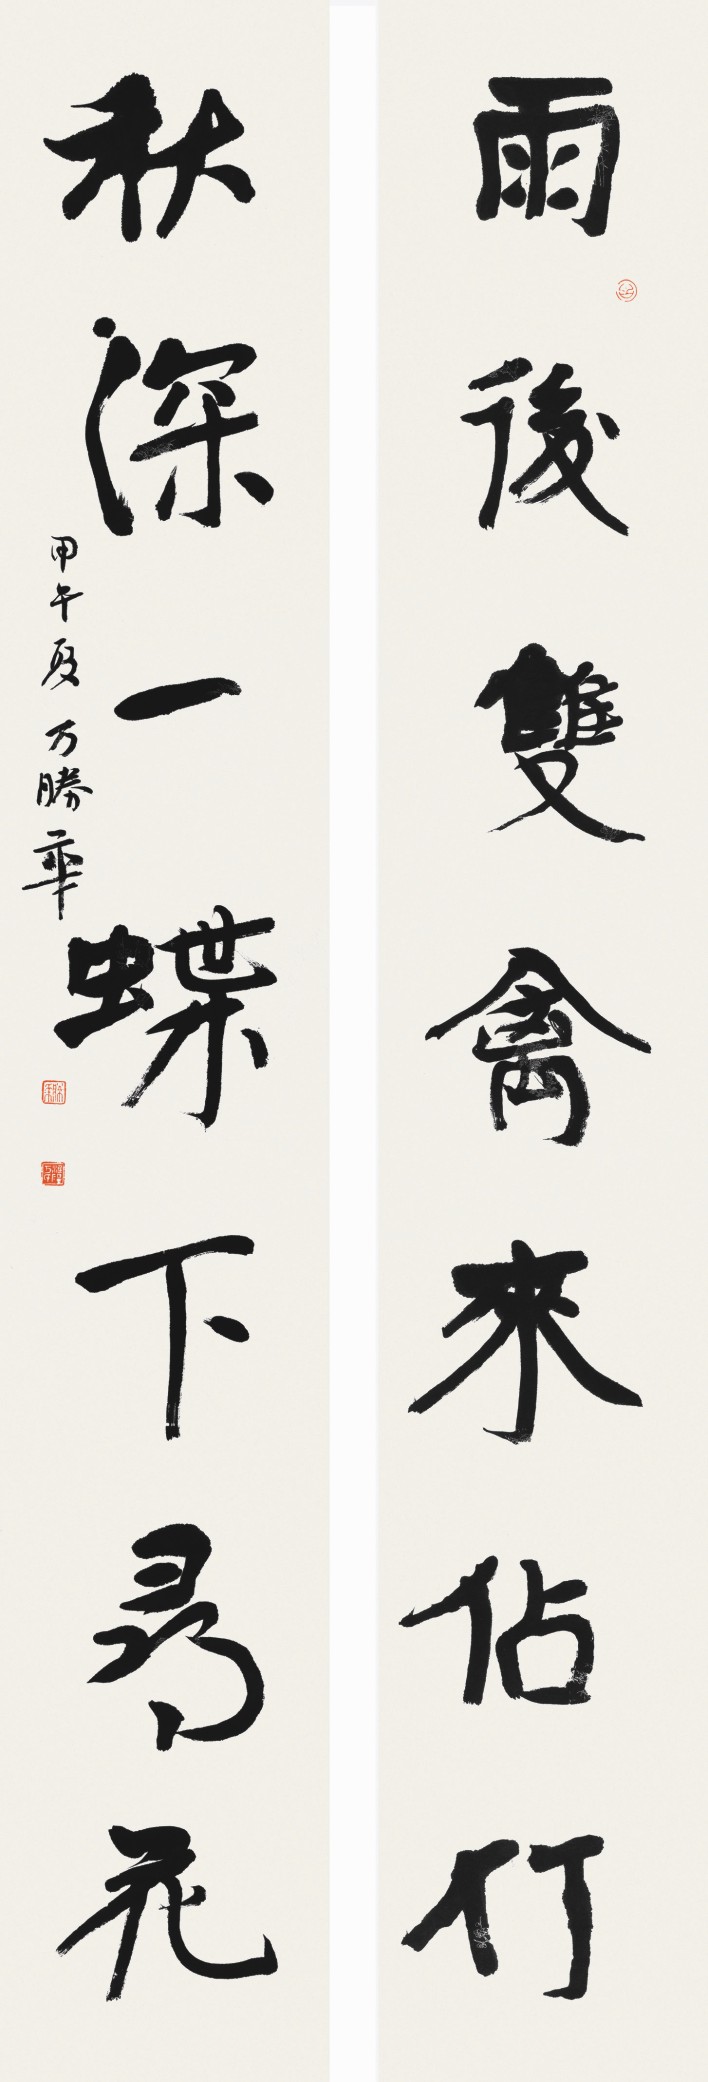 雨後雙禽來佔竹
秋深一蝶下尋花
甲午夏万勝華